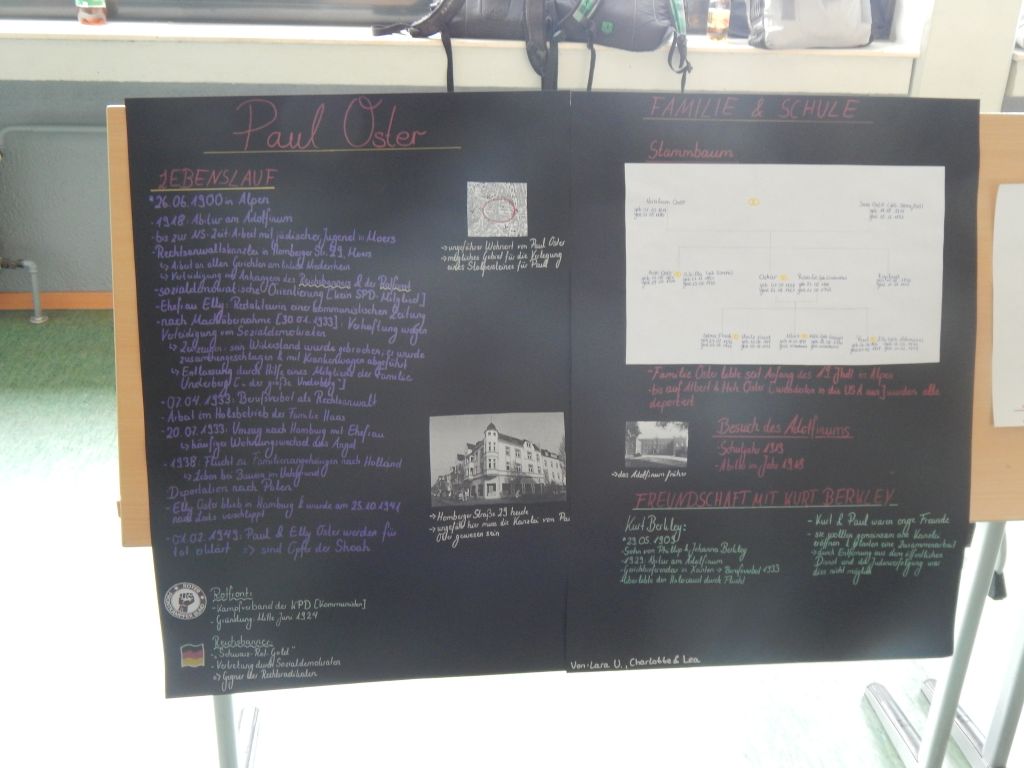 Paul Oster
LEBENSLAUF
*26.06.1900 in Alpen
-1918: Abitur am Adolfinum
-bis zur NS-Zeit Arbeit mit jüdischer Jugend in Moers
-Rechtsanwaltskanzlei in Homberger Str. 29, Moers
↳ Arbeit an allen Gerichten am linken Niederrhein
↳ Verteidigung von Anhängern des Reichsbanners & der Rotfront
-sozialdemokratische Orientierung [kein SPD-Mitglied]
-Ehefrau Elly: Redakteurin einer kommunistischen Zeitung
-nach Machtübernahme [30.01.1933]: Verhaftung wegen
Verteidigung von Sozialdemokraten
↳ Zeitzeugen: sein Widerstand wurde gebrochen, er wurde
zusammengeschlagen & mit Krankenwagen abgeführt
↳ Entlassung durch Hilfe eines Mitglieds der Familie
Underberg [„der große Underberg"]
-07.04.1933: Berufsverbot als Rechtsanwalt
-Arbeit im Holzbetrieb der Familie Haas
-20.07.1933: Umzug nach Hamburg mit Ehefrau
↳ häufiger Wohnungswechsel aus Angst
-1938: Flucht zu Familienangehörigen nach Holland
↳ Leben bei
Deportation nach Polen
-Elly Oster blieb in Hamburg & wurde am 25.10.1941
nach Lodz verschleppt
-08.02.1949: Paul & Elly Oster werden für
tot erklärt => sind Opfer der Shoah
Rotfront:
-Kampfverband der KPD [Kommunisten]
-Gründung: Mitte Juni 1924
Reichsbanner:
-„Schwarz-Rot-Gold"
-Vertretung durch Sozialdemokraten
=> Gegner der Rechtsradikalen
→ ungefährer Wohnort von Paul Oster
→ mögliches Gebiet für die Verlegung
eines Stolpersteines für Paul
→ Homberger Straße 29 heute
→ ungefähr hier muss die Kanzlei von Paul
Oster gewesen sein
FAMILIE & SCHULE
Stammbaum
-Familie Oster lebte seit Anfang des 19. Jhdt in Alpen
-bis auf Albert & Hete Oster [wanderten in die USA aus] wurden alle
deportiert
Besuch des Adolfinums
-Schuljahr 1913
-Abitur im Jahr 1918
→ das Adolfinum früher
FREUNDSCHAFT MIT KURT BERKLEY
Kurt Berkley:
*29.05.1909
-Sohn von Phillip & Johanna Berkley
-1929: Abitur am Adolfinum
-Gerichtsreferendar in Xanten → Berufsverbot 1933
-überlebte den Holocaust durch Flucht
-Kurt & Paul waren enge Freunde
-sie wollten gemeinsam eine Kanzlei
eröffnen & planten eine Zusammenarbeit
→ durch Entfernung aus dem öffentlichen
Dienst und der Judenverfolgung war
dies nicht möglich
Von: Lara U., Charlotte & Lea